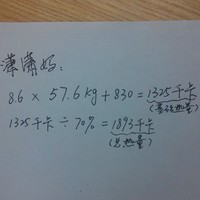 潇潇妈:
8.6 × 57.6kg + 830 = 1325千卡
(基础热量)
1325千卡 ÷ 70% = 1893千卡
(总热量)